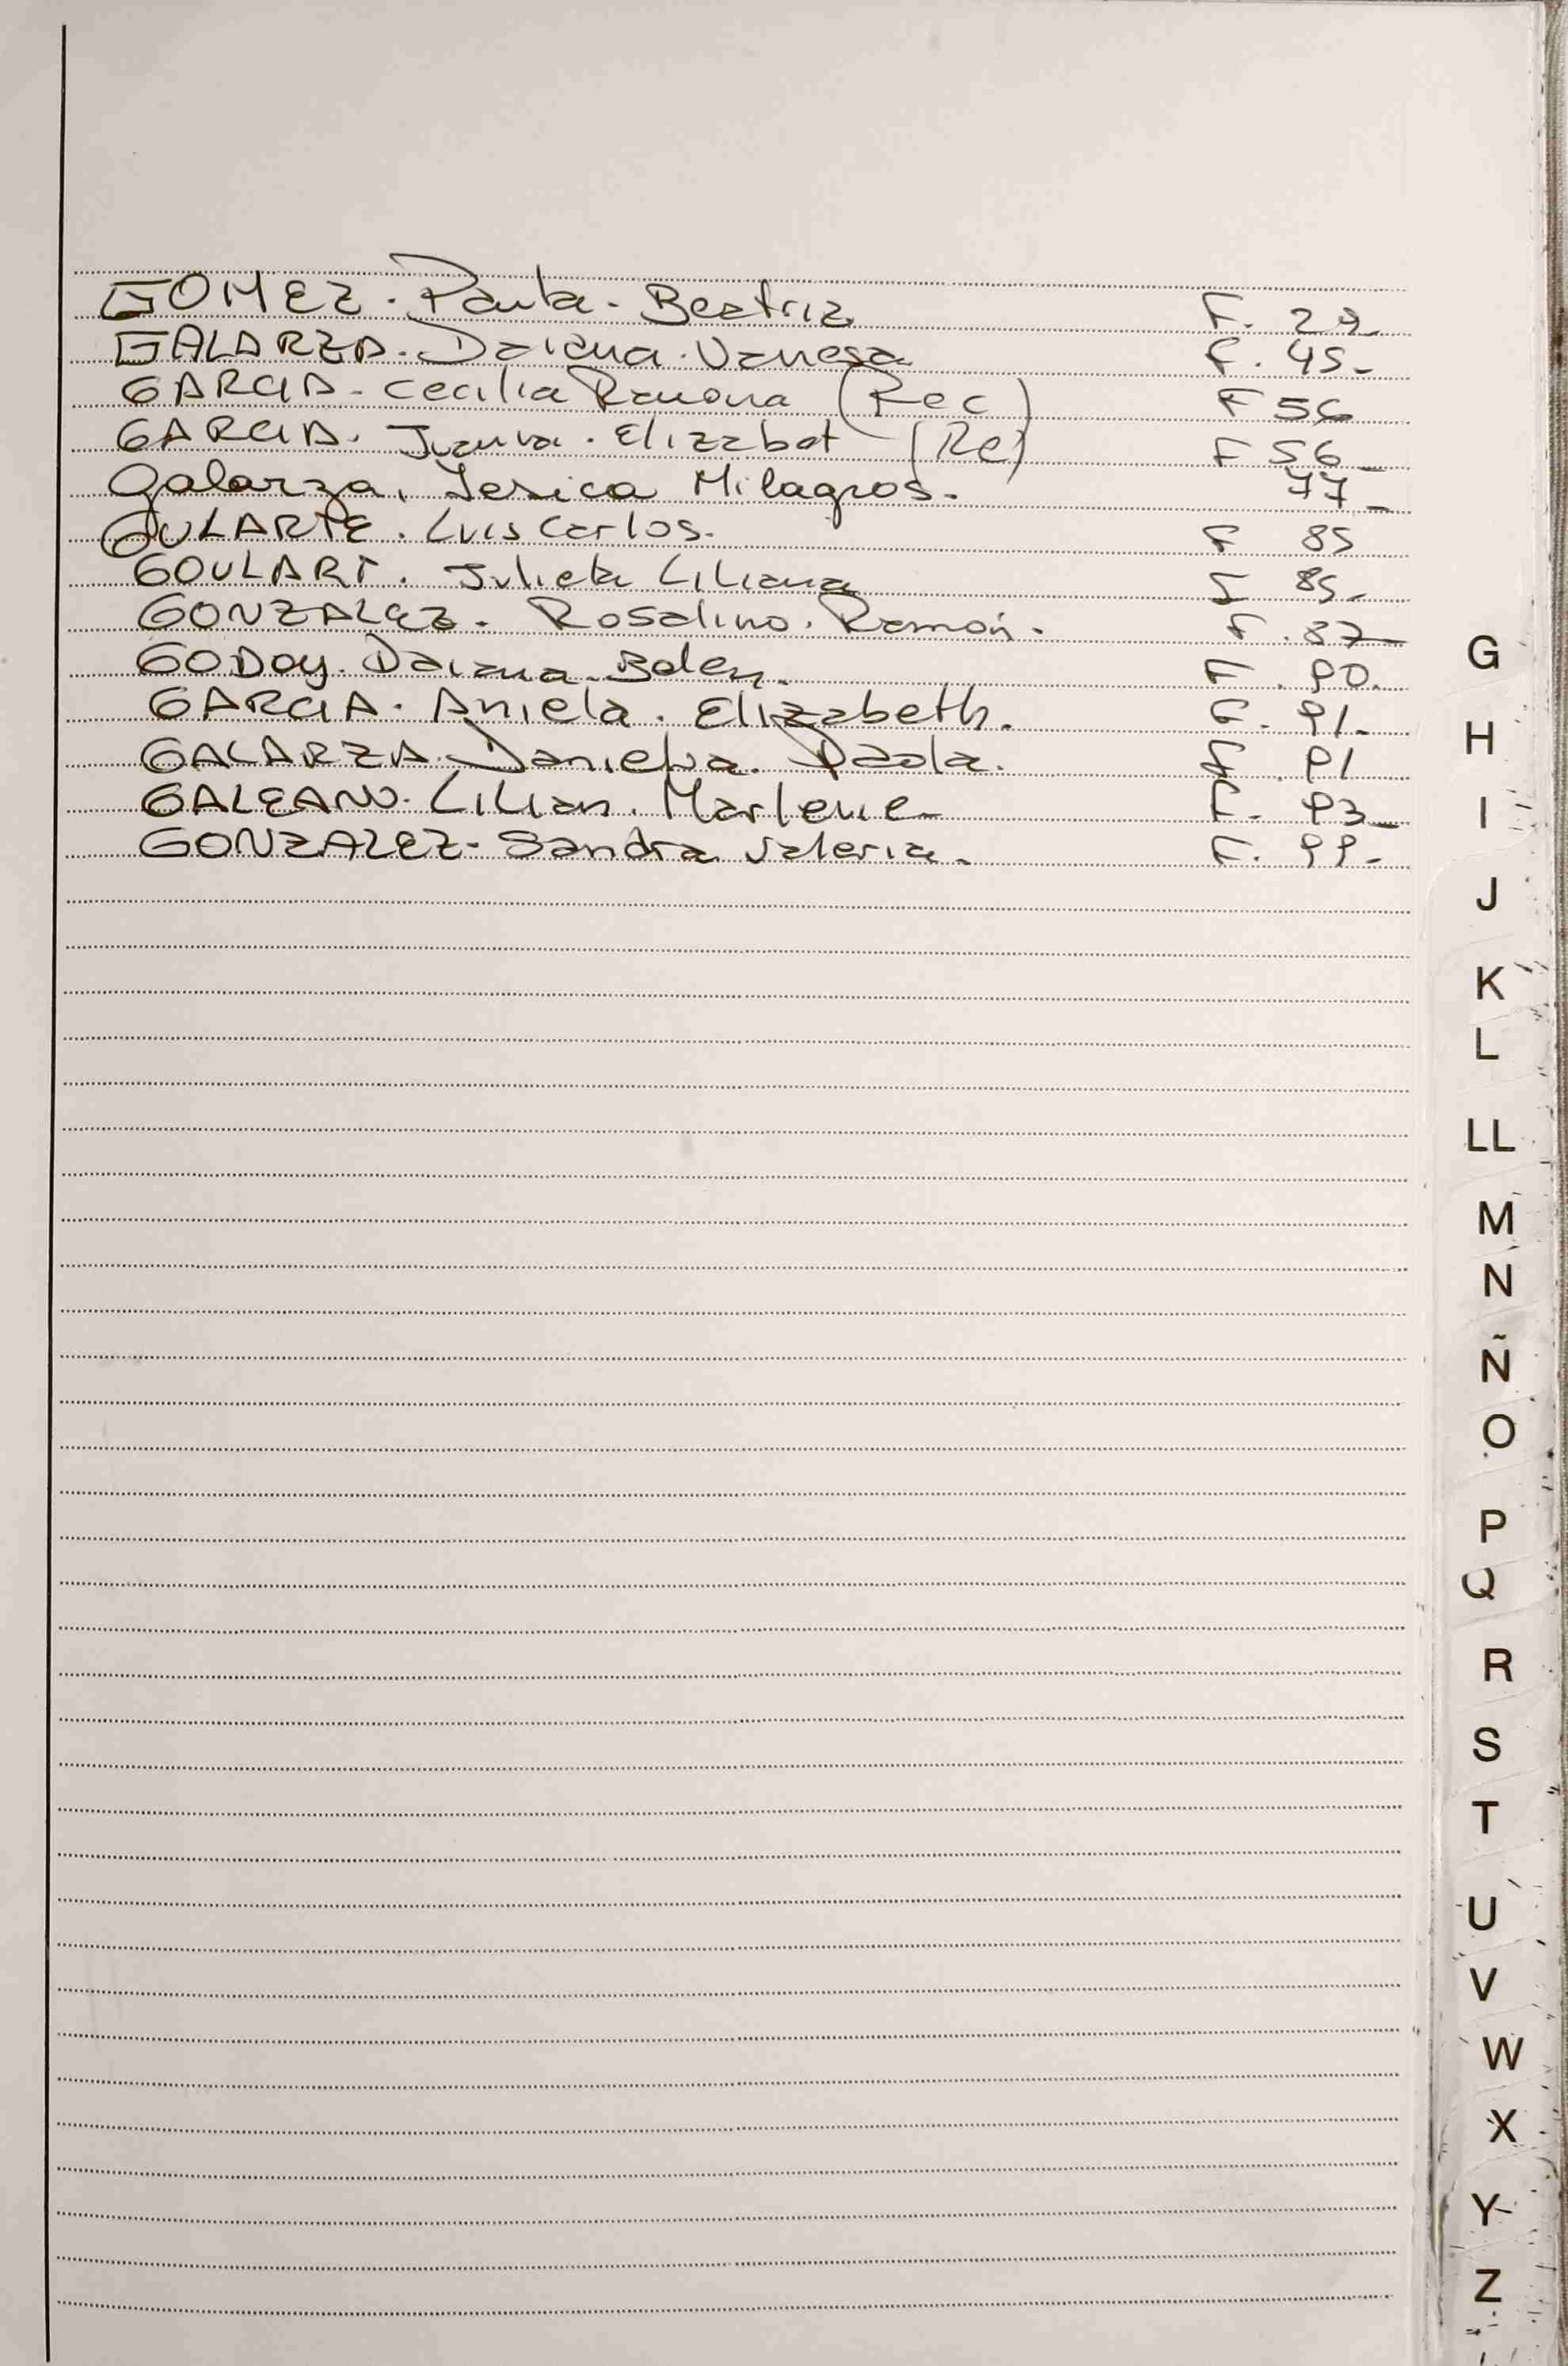 GOMEZ. Paula. Beatriz F. 29-
GALARZA. Daiana. Vanesa F. 45-
GARCIA - Cecilia Ramona (Rec) F 56
GARCIA. Juana. Elizabet (Re) F 56-
Galarza, Yesica Milagros. 77-
GULARTE. Luis Carlos. F 85
GOULART. Julieta Liliana F 85-
GONZALEZ. Rosalino. Ramón. F. 87-
GODOY. Daiana. Belen. F. 90.
GARCIA. Aniela. Elizabeth. F. 91.
GALARZA. Daniela. Paola. F. 91
GALEANO. Lilian. Marlene- F. 93-
GONZALEZ- Sandra Valeria. F. 99-
G
H
I
J
K
L
LL
M
N
Ñ
O
P
Q
R
S
T
U
V
W
X
Y
Z